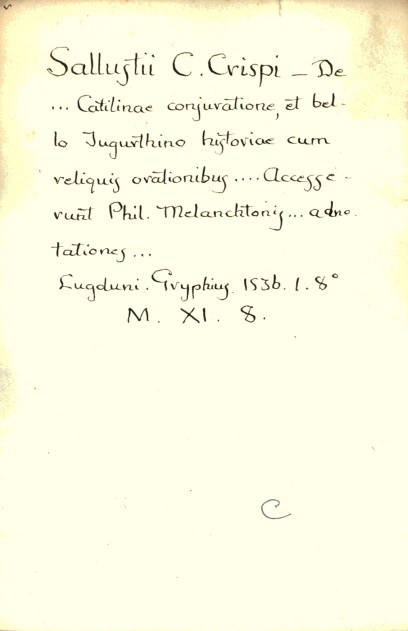 Sallustii C. Crispi - De
... Catilinae conjuratione, et bel-
lo Jugurthino historiae cum
reliquis orationibus .... Accesse-
runt Phil. Melanchtonis ... adno-
tationes ...
Lugduni. Gryphius. 1536. 1. 8°
M. XI. 8.
C